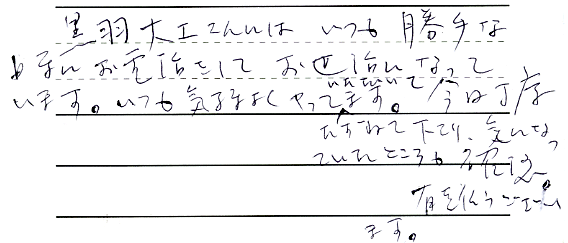 黒羽大工さんにはいつも勝手な
お願いお電話をしてお世話になって
います。いつも気持よくやっていただいてます。今日丁度
たずねて下さり、気になっ
ていたところも
有難うござい
ます。